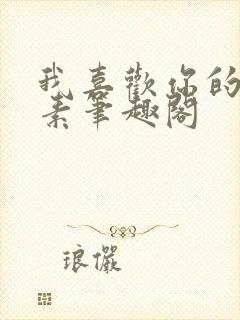 我喜歡你的
素筆趣閣
琅儼